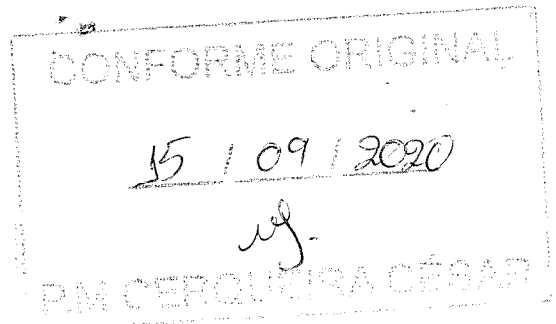 CONFORME ORIGINAL
15 / 09 / 2020
P.M CERQUEIRA CÉSAR